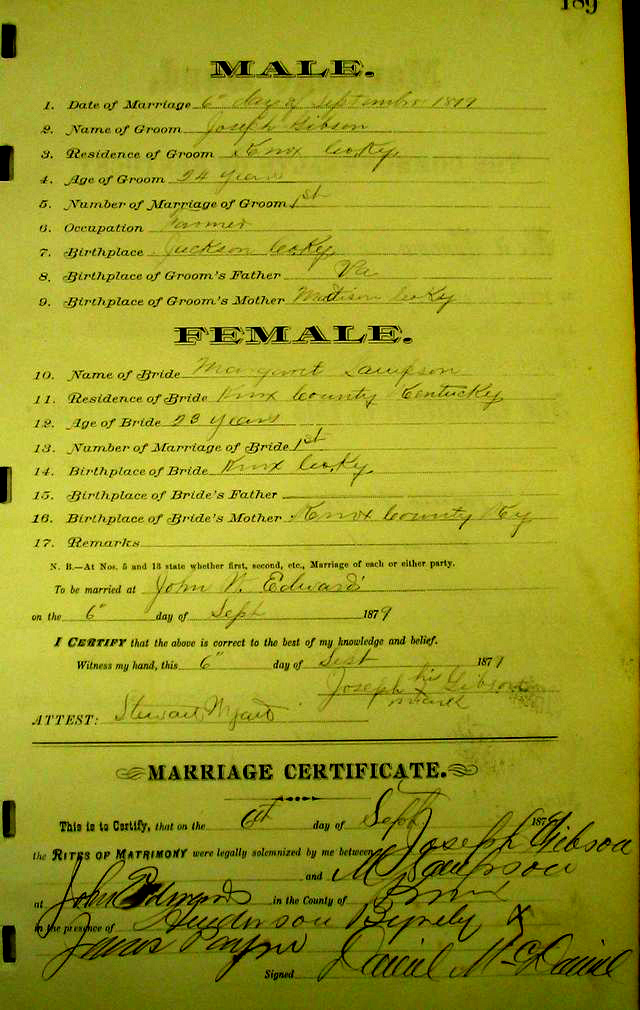 189
MALE.
1. Date of Marriage 6" day of September 1879
2. Name of Groom Joseph Gibson
3. Residence of Groom Knox Co Ky
4. Age of Groom 24 years
5. Number of Marriage of Groom 1st
6. Occupation Farmer
7. Birthplace Jackson Co Ky
8. Birthplace of Groom's Father Va
9. Birthplace of Groom's Mother Madison Co Ky
FEMALE.
10. Name of Bride Margaret Sampson
11. Residence of Bride Knox County Kentucky
12. Age of Bride 23 years
13. Number of Marriage of Bride 1st
14. Birthplace of Bride Knox Co Ky
15. Birthplace of Bride's Father
16. Birthplace of Bride's Mother Knox County Ky
17. Remarks
N. B.—At Nos. 5 and 13 state whether first, second, etc., Marriage of each or either party.
To be married at John N. Edwards
on the 6" day of Sept 1879
I CERTIFY that the above is correct to the best of my knowledge and belief.
Witness my hand, this 6" day of Sept 1879
Joseph his x mark Gibson
ATTEST: Stewart
MARRIAGE CERTIFICATE.
This is to Certify, that on the 6th day of Sept 1879
the RITES OF MATRIMONY were legally solemnized by me between Joseph Gibson
and M Sampson
at John Edwards in the County of Knox
in the presence of Henderson Byrely &
James Payne
Signed Daniel McDaniel